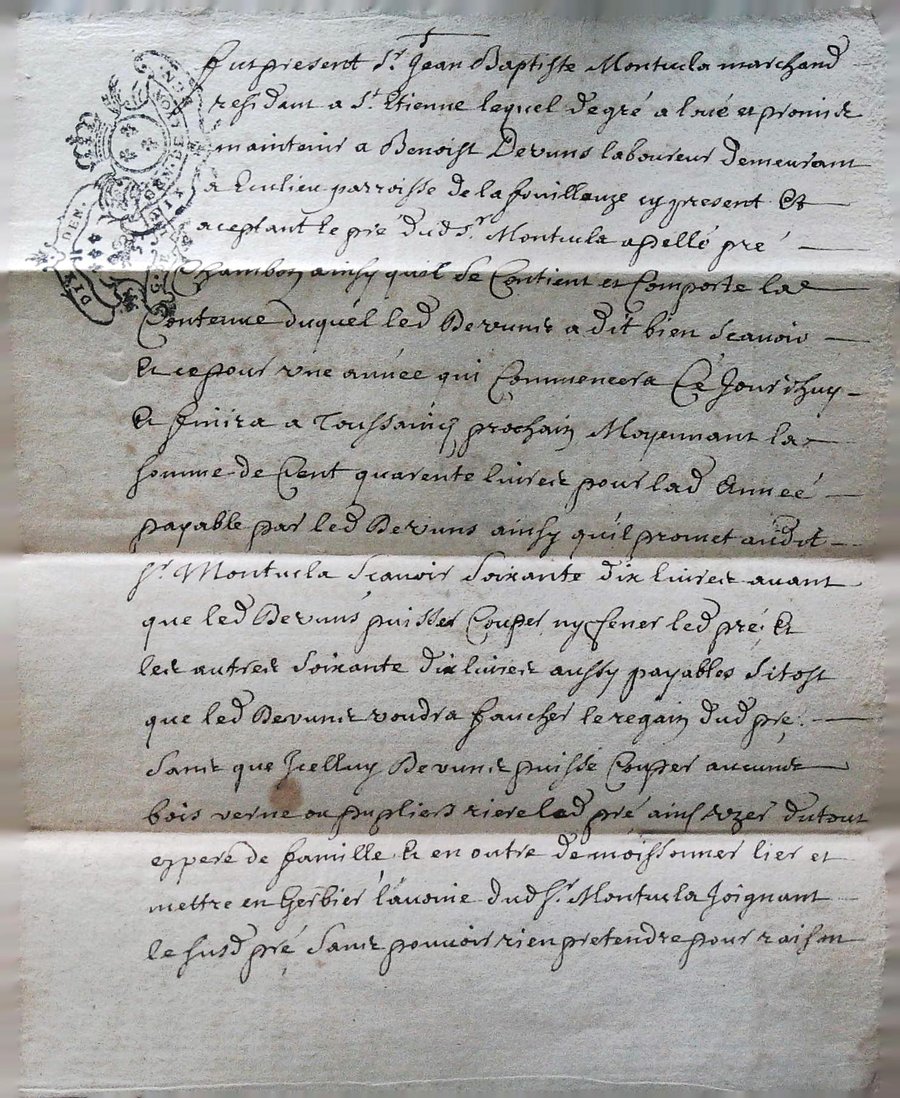 fut present Sr. Jean Baptiste Montucla marchand
residant a St. Etienne lequel de gré a loué et promis
maintenir a Benoist Devuns laboureur demeurant
a Eculieu parroisse de la fouillouze cy present et
aceptant le pré dud Sr. Montucla apellé pré
Chambon ainsy quil se Contient et Comporte la
Contenue duquel led Devuns a dit bien Scavoir
Et ce pour une année qui Commencera Ce Jourdhuy
Et finira a Toussaincts prochain Moyennant la
somme de Cent quarente livres pour lad Année
payable par led Devuns ainsy quil promet audit
Sr. Montucla Scavoir Soixante dix livres avant
que led Devuns puisse Couper ny fener led pré Et
les autres Soixante dix livres aussy payables Sitost
que led Devuns voudra faucher le regain dud pré
Sans que Icelluy Devuns puisse Couper aucuns
bois verne ou pupliers riere led pré ains Vzer du tout
en pere de famille Et en outre de moissonner lier et
mettre en Gerbier l'avoine dud Sr. Montucla Joignant
le susd pré Sans pouvoir rien pretendre pour raison